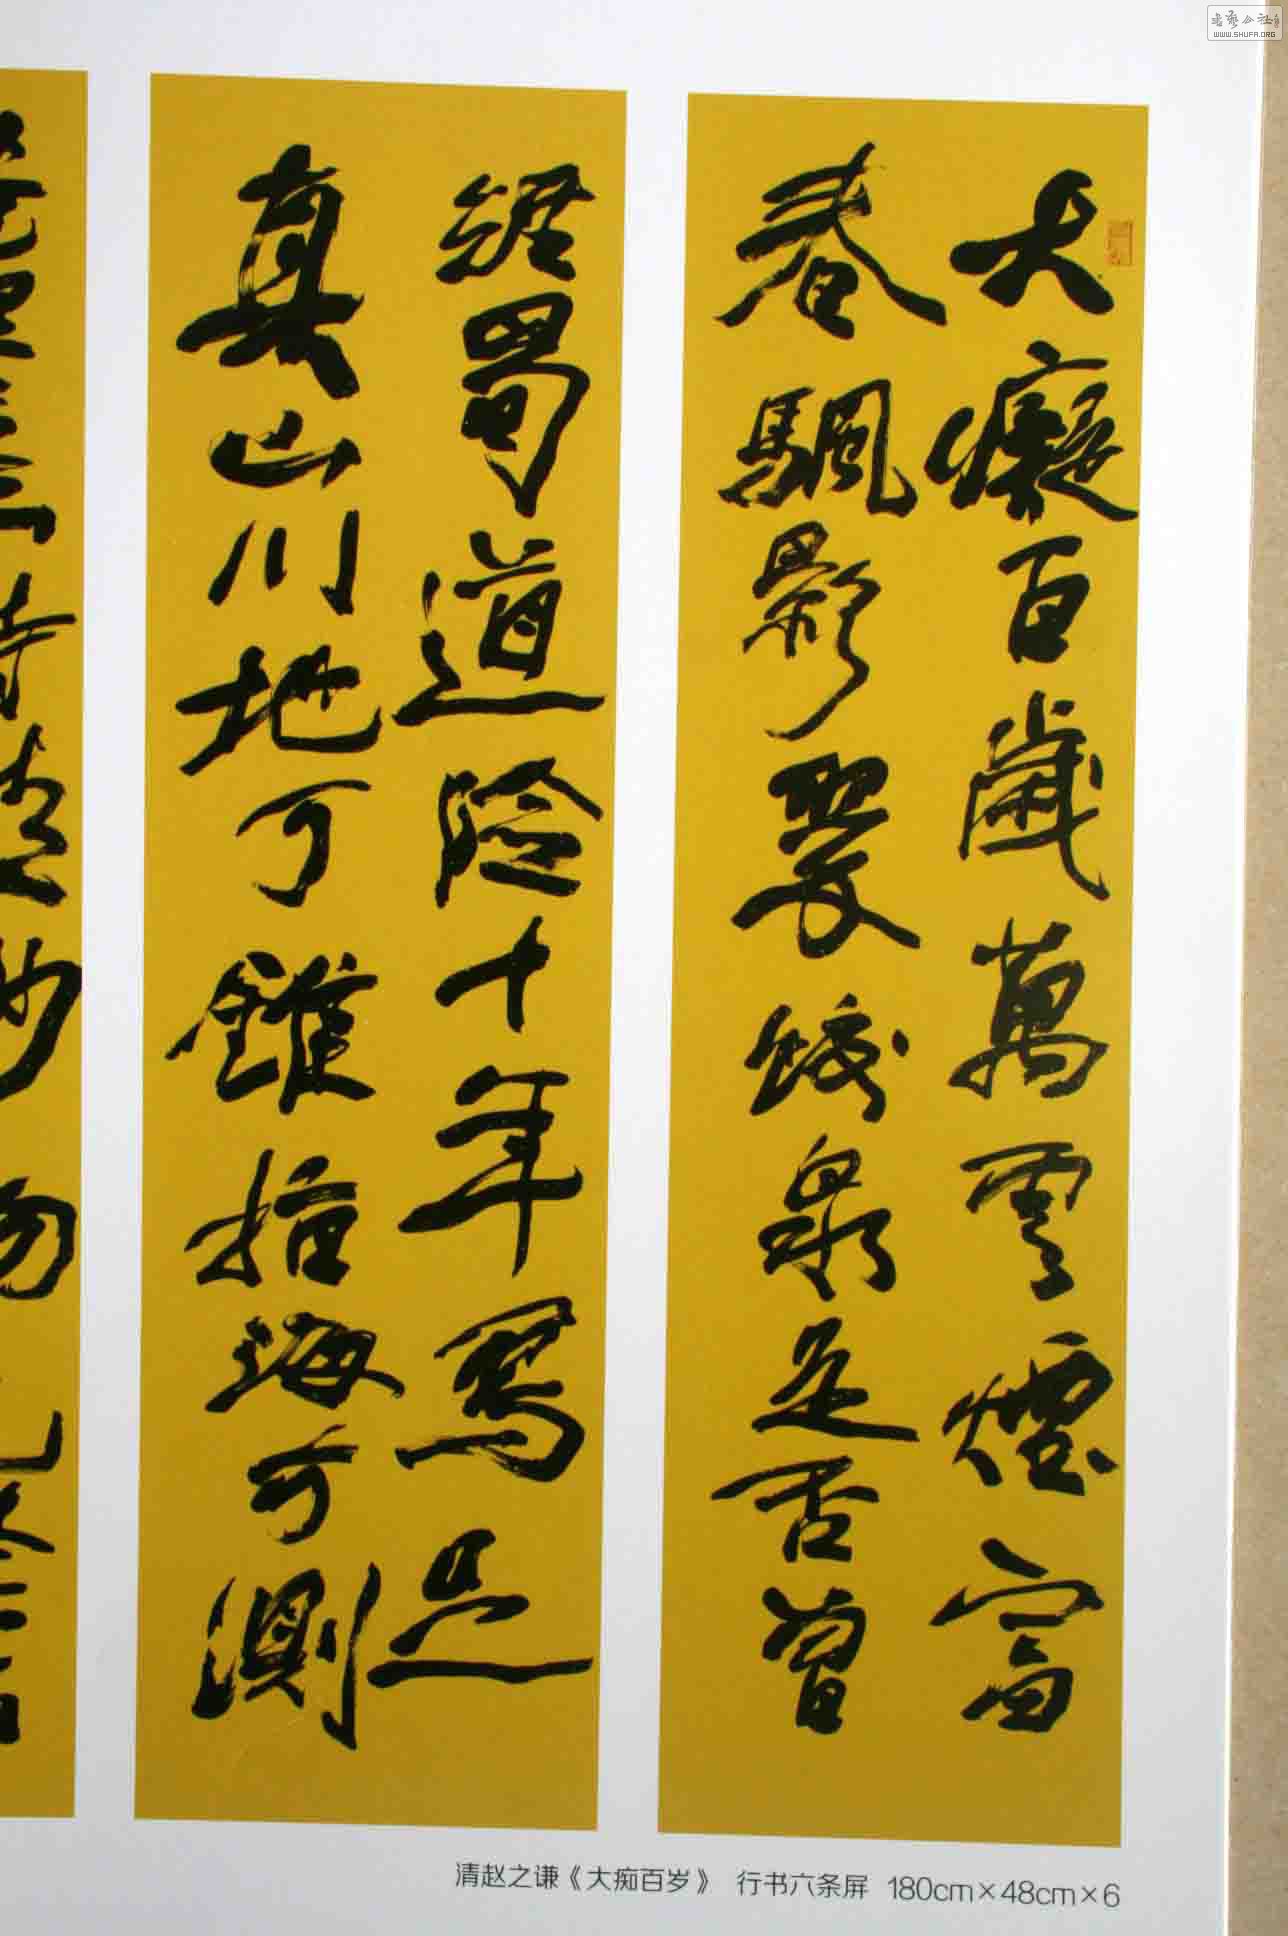 大癡百歲萬雲煙富
春颿影聚泉足否曾
經蜀道險十年寫足
真山川地可錐指海可測
清赵之谦《大痴百岁》 行书六条屏 180cm×48cm×6
书艺公社
WWW.SHUFA.ORG